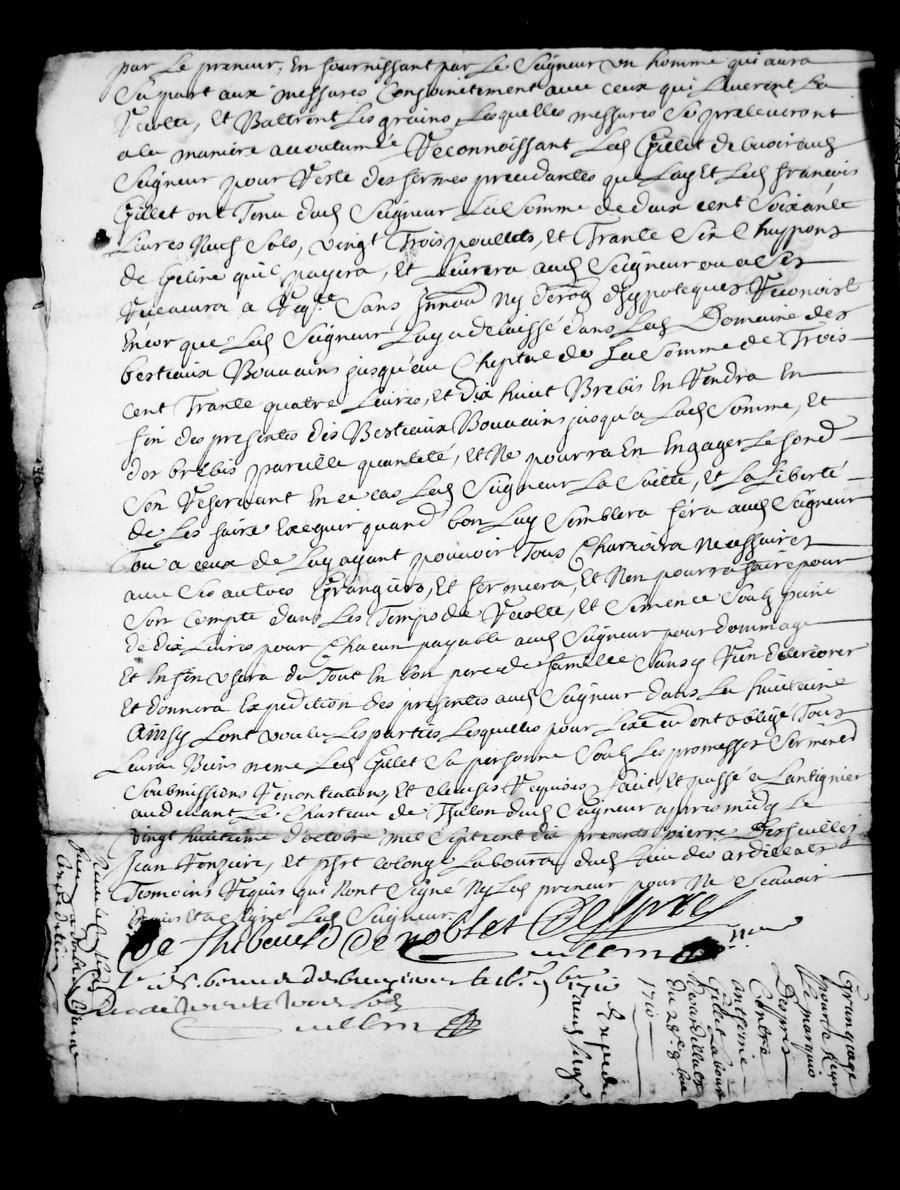 par Le preneur, En fournissant par Le Seigneur un homme qui aura
Sa part aux messures Conjoinctement avec ceux qui Leveront La
Recolte, et Battront Les grains, Lesquelles messures Se preleveront
a la maniere accoutumée Reconnoissant Led Gillet debvoir aud
Seigneur pour Reste des fermes precedantes que Luy et Led francois
Gillet ont Tenu dud Seigneur La Somme de deux cent Soixante
Livres Neuf Sols, vingt Trois poullets, et Trante Six Chappons
de Geline qu'il payera, et Livrera aud Seigneur ou a Ses
a Reqte Sans Innovaon Ny derogaon d'hypoteques Reconoist
Encor que Led Seigneur Luy a delaissé dans Led Domaine des
bestiaux Bouvains jusqu'au Cheptal de La Somme de Trois
cent Trante quatre Livres, et dix huit Brebis En Rendra En
fin des presentes des Bestiaux Bouvains jusqu'a Lad Somme, et
des brebis pareille quantité, et Ne pourra En Engager Le fond
Sen Reservant En ce cas Led Seigneur La Suitte, et La Liberté
de Les faire Exeguir quand bon Luy Semblera fera aud Seigneur
ou a ceux de Luy ayant pouvoir Tous Charrois Necessaires
avec Ses autres Grangers, et fermiers, et Nen pourra faire pour
Son Compte dans Les Temps de Recolte, et Semence Soub peine
de dix Livres pour Chacun payable aud Seigneur pour dommage
Et Enfin usera du Tout En bon pere de famille Sans y Rien deteriorer
Et donnera Expedition des presentes aud Seigneur dans La huitaine
Ainsy Lont voulu Les parties Lesquelles pour Lexeon ont obligé Tous
Leurs Biens meme Led Gillet Sa personne Soub Les promesses Serment
Soubmissions Renontiations, et clauses Requises fait, et passé a Lantignier
audevant Le Chasteau de Thulon dud Seigneur appres midy Le
vingt huitieme d'octobre mil Sept cent dix presents pierre
Jean et phrt colonge Laboura dud Lieu des ardillats
Tesmoins Requis qui Nont Signé Ny Led preneur pour Ne Scavoir
Enquis et a Signé Led Seigneur
de Thibauld de noblet Despres
1710
Grangeage
pour Le Seigr
Le marquis
Despres
Contre
anthoine
Gillet Labour
des ardillats
du 28e 8bre
1710
Expedié
aud Seigr